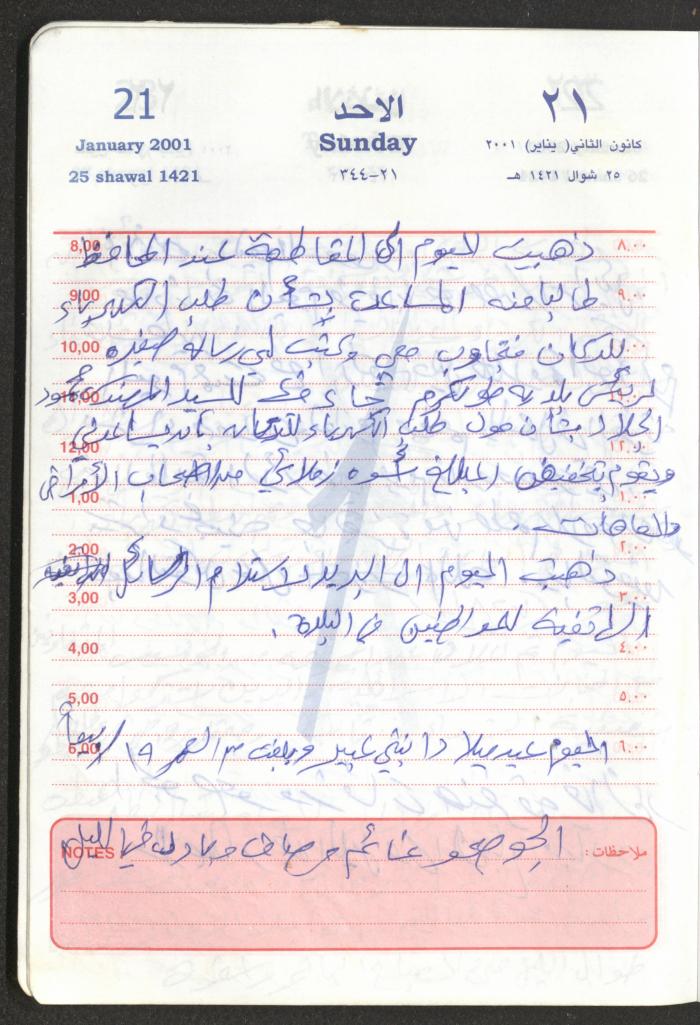 21 الاحد ٢١
January 2001 Sunday كانون الثاني( يناير) ٢٠٠١
25 shawal 1421 ٣٤٤-٢١ ٢٥ شوال ١٤٢١ هـ
8,00 ذهبت اليوم الى المقاطعة عند المحافظ ٨.٠٠
9,00 طالبا منه المساعدة بشأن طلب الكهرباء ٩.٠٠
10,00 للدكان فتجاوب معي وكتب لي رساله صغيره
لرئيس بلدية طولكرم جاء فيها للسيد المهندس محمود
الجلاد بشأن حول طلب الكهرباء للدكان بأن يساعدني
12,00 ١٢.٠٠
ويقوم بتخفيض المبلغ أسوه زملائي من اصحاب الأمراض
1,00 ١.٠٠
والعاهات.
2,00 ٢.٠٠
ذهبت اليوم الى البريد لاستلام الرسائل
3,00 ٣.٠٠
الهاتفية للمواطنين في البلدة.
4,00 ٤.٠٠
5,00 ٥.٠٠
6,00 اليوم عيد ميلاد ابنتي عبير وبلغت من العمر ١٩ ربيعاً ٦.٠٠
NOTES ملاحظات: الجو صحو غائم وصافي وبارد في الليل